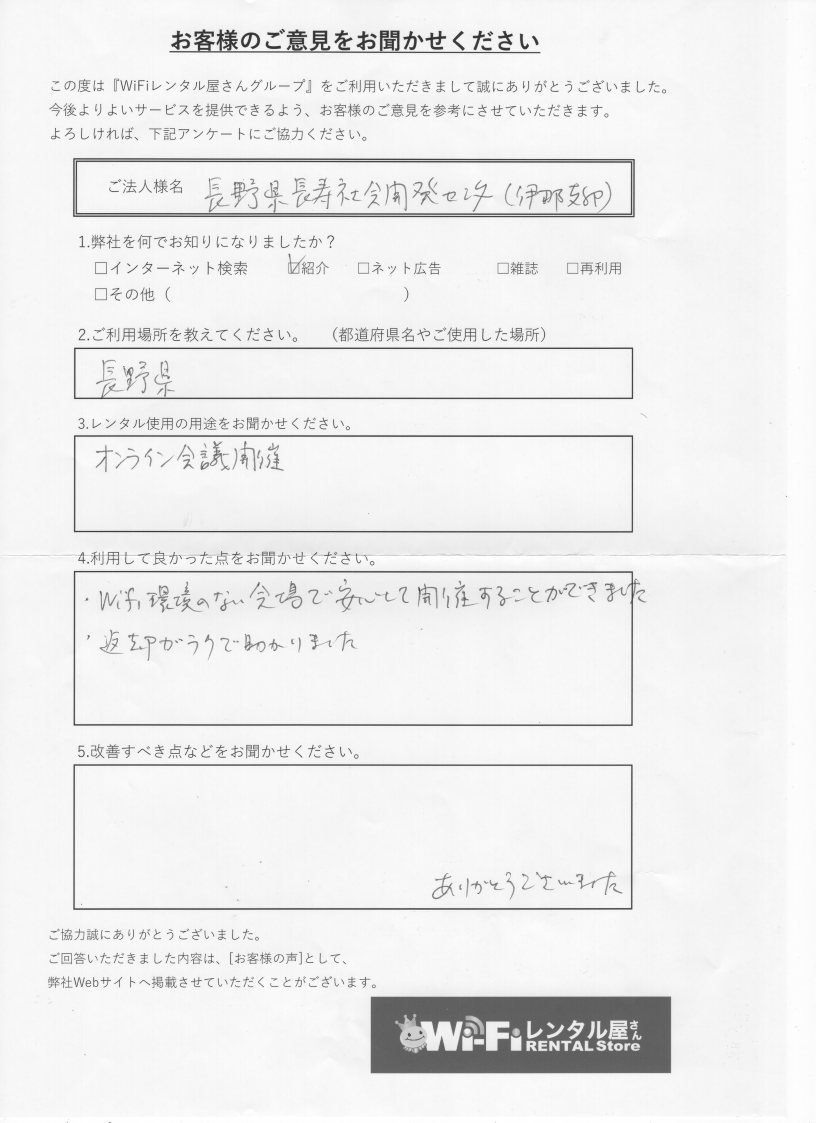 お客様のご意見をお聞かせください
この度は『WiFiレンタル屋さんグループ』をご利用いただきまして誠にありがとうございました。
今後よりよいサービスを提供できるよう、お客様のご意見を参考にさせていただきます。
よろしければ、下記アンケートにご協力ください。
ご法人様名 長野県長寿社会開発センター(伊那支部)
1.弊社を何でお知りになりましたか？
□インターネット検索 ☑紹介 □ネット広告 □雑誌 □再利用
□その他（ ）
2.ご利用場所を教えてください。 （都道府県名やご使用した場所）
長野県
3.レンタル使用の用途をお聞かせください。
オンライン会議開催
4.利用して良かった点をお聞かせください。
・Wifi環境のない会場で安心して開催することができました
・返却がラクで助かりました
5.改善すべき点などをお聞かせください。
ありがとうございました
ご協力誠にありがとうございました。
ご回答いただきました内容は、[お客様の声]として、
弊社Webサイトへ掲載させていただくことがございます。
Wi-Fiレンタル屋さん
RENTAL Store